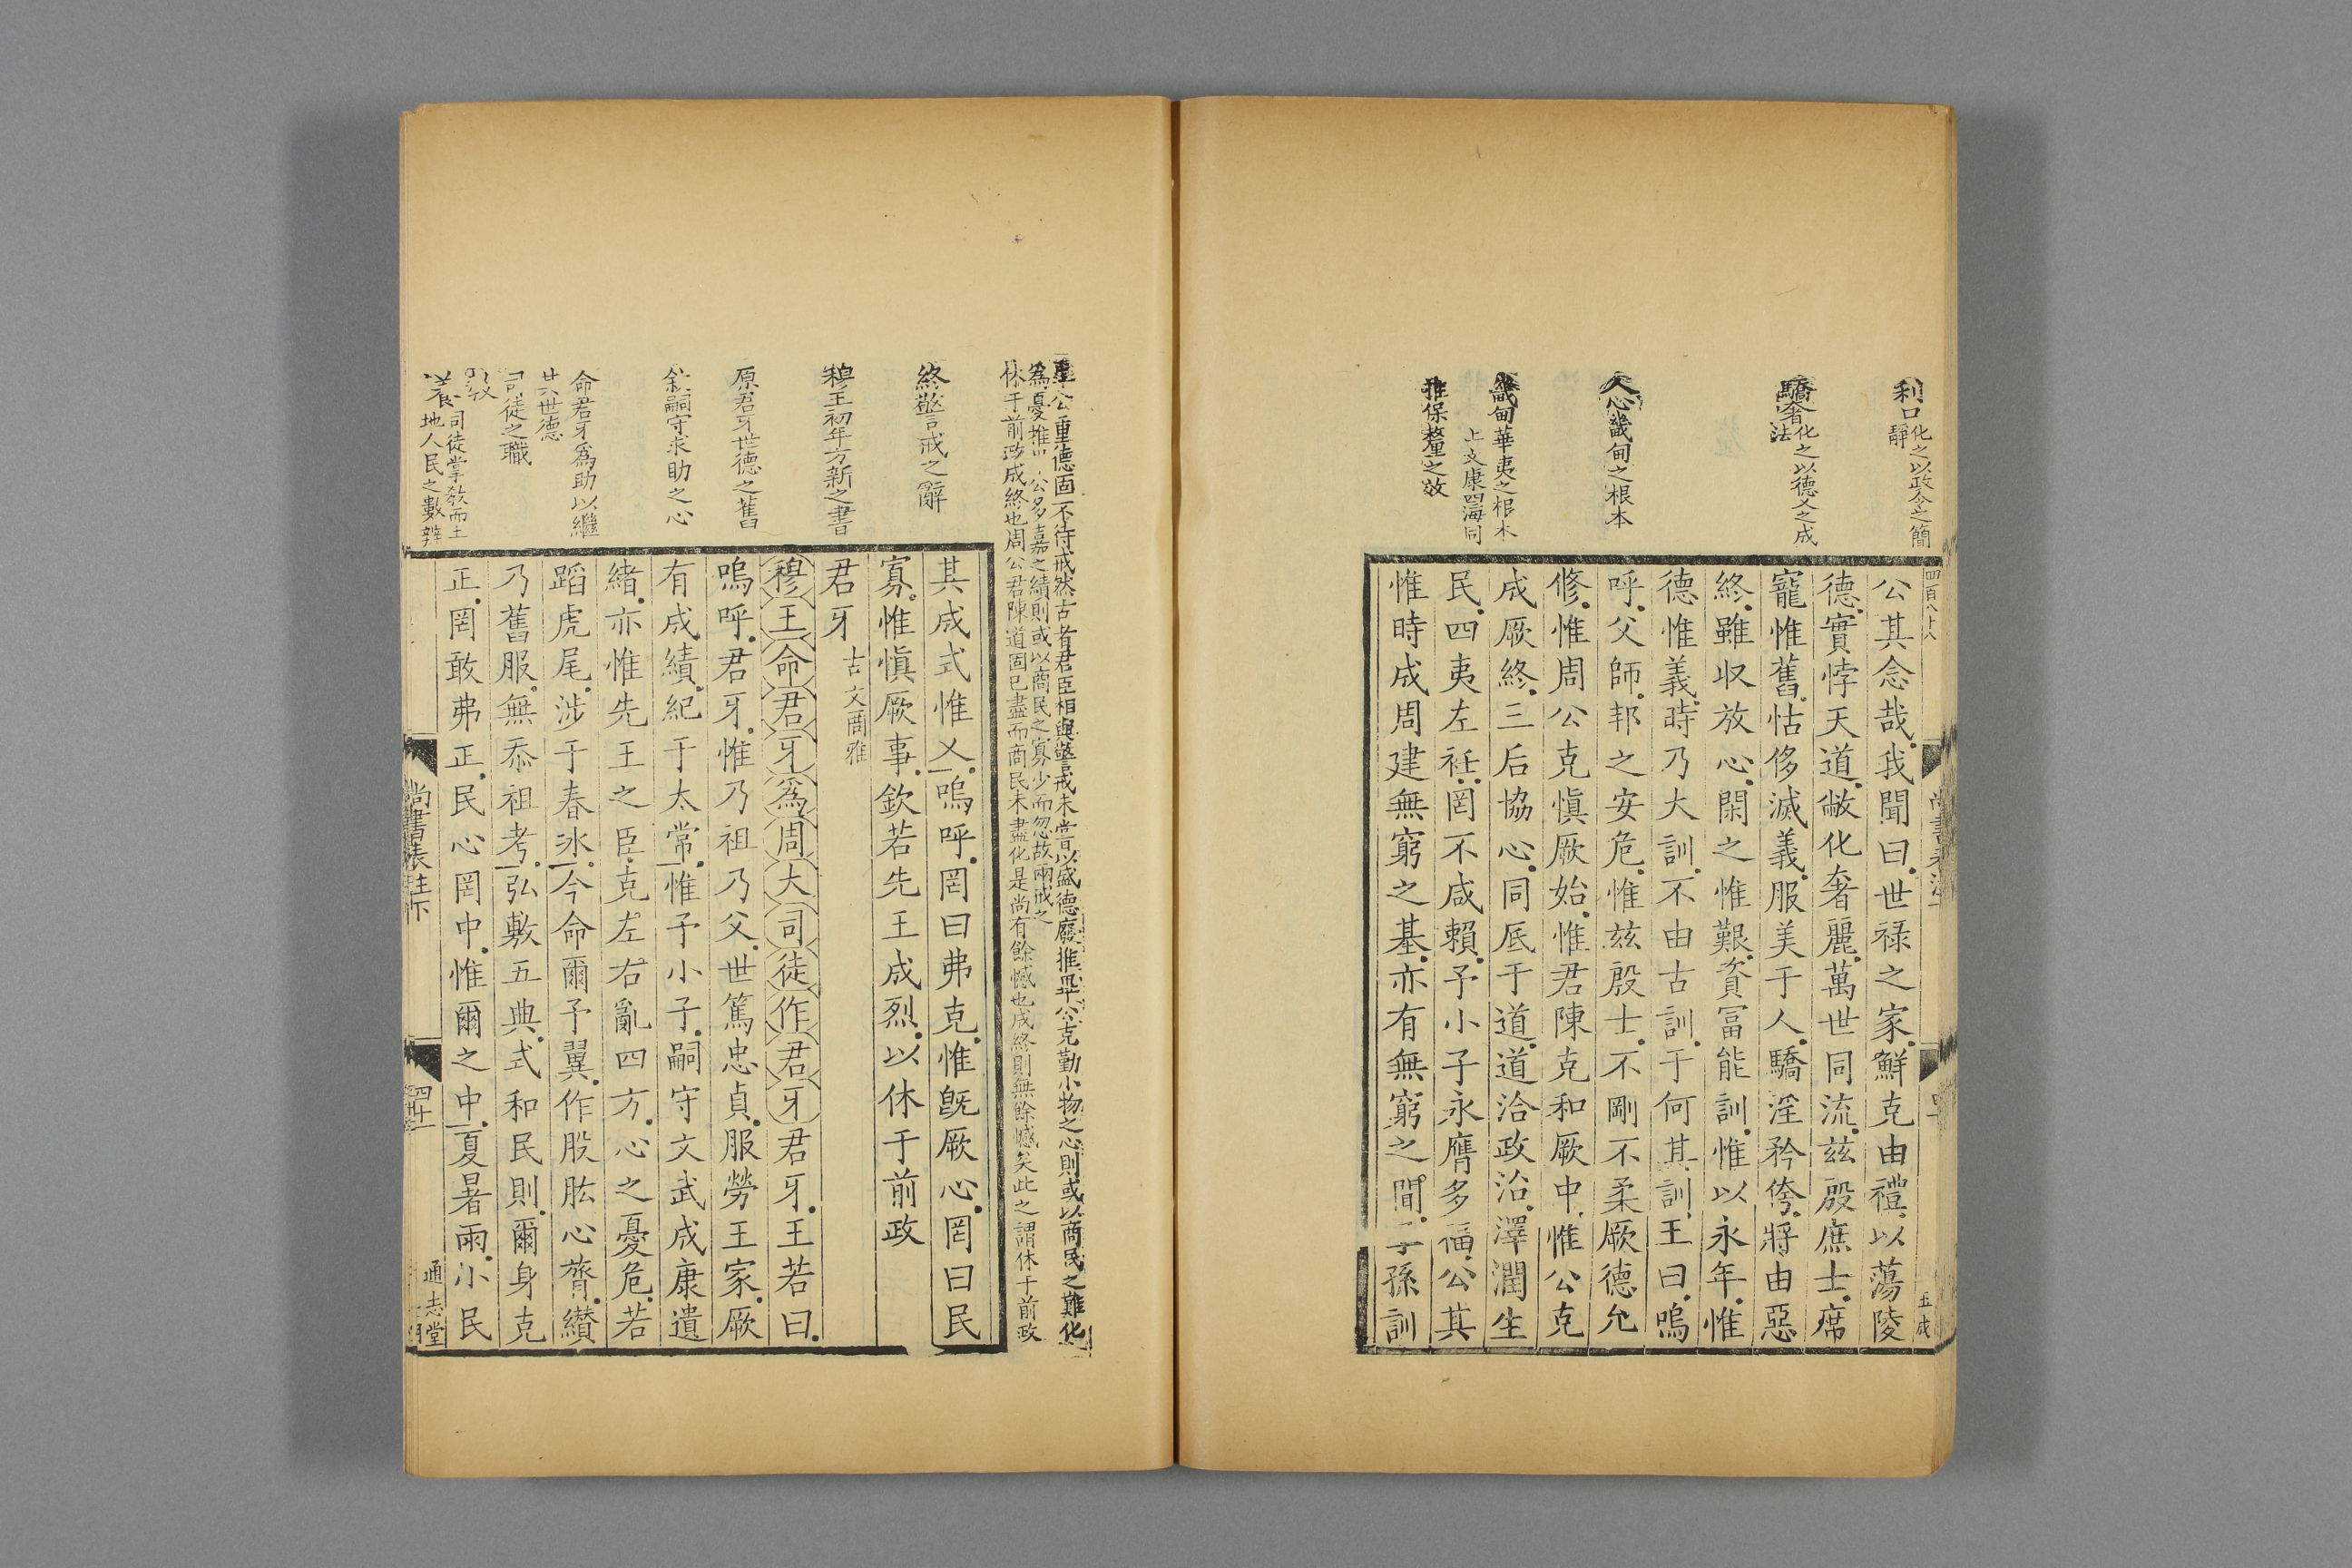 四百八十八
利口化之以政令之簡
靜
驕奢化之以德乂之成
法
人心畿甸之根本
畿甸華夷之根本
上文康四海同
推保釐之效
公其念哉我聞曰世禄之家鮮克由禮以蕩陵
德實悖天道敝化奢麗萬世同流兹殷庶士席
寵惟舊怙侈滅義服美于人驕淫矜侉將由惡
終雖収放心閑之惟艱資冨能訓惟以永年惟
德惟義時乃大訓不由古訓于何其訓王曰嗚
呼父師邦之安危惟兹殷士不剛不柔厥德允
修惟周公克愼厥始惟君陳克和厥中惟公克
成厥終三后協心同厎于道道洽政治澤潤生
民四夷左衽罔不咸賴予小子永膺多福公其
惟時成周建無窮之基亦有無窮之聞子孫訓
畢公重德固不待戒然古者君臣相與警戒未嘗以盛德廢推畢公克勤小物之心則或以商民之難化
爲憂推 公多嘉之績則或以商民之寡少而忽故兩戒之
休于前政成終也周公君陳道固已盡而商民未盡化是尚有餘憾也成終則無餘憾矣此之謂休于前政
終警戒之辭
穆王初年方新之書
原君牙世德之舊
叙嗣守求助之心
命君牙爲助以繼
其世德
司徒之職
教
養司徒掌教而土
地人民之數辨
其成式惟乂嗚呼罔曰弗克惟旣厥心罔曰民
寡惟愼厥事欽若先王成烈以休于前政
君牙 古文商雅
穆王命君牙爲周大司徒作君牙君牙王若曰
嗚呼君牙惟乃祖乃父世篤忠貞服勞王家厥
有成績紀于太常惟予小子嗣守文武成康遺
緒亦惟先王之臣克左右亂四方心之憂危若
蹈虎尾涉于春冰今命爾予翼作股肱心膂纉
乃舊服無忝祖考弘敷五典式和民則爾身克
正罔敢弗正民心罔中惟爾之中夏暑雨小民
尚書表註下
四十一
通志堂